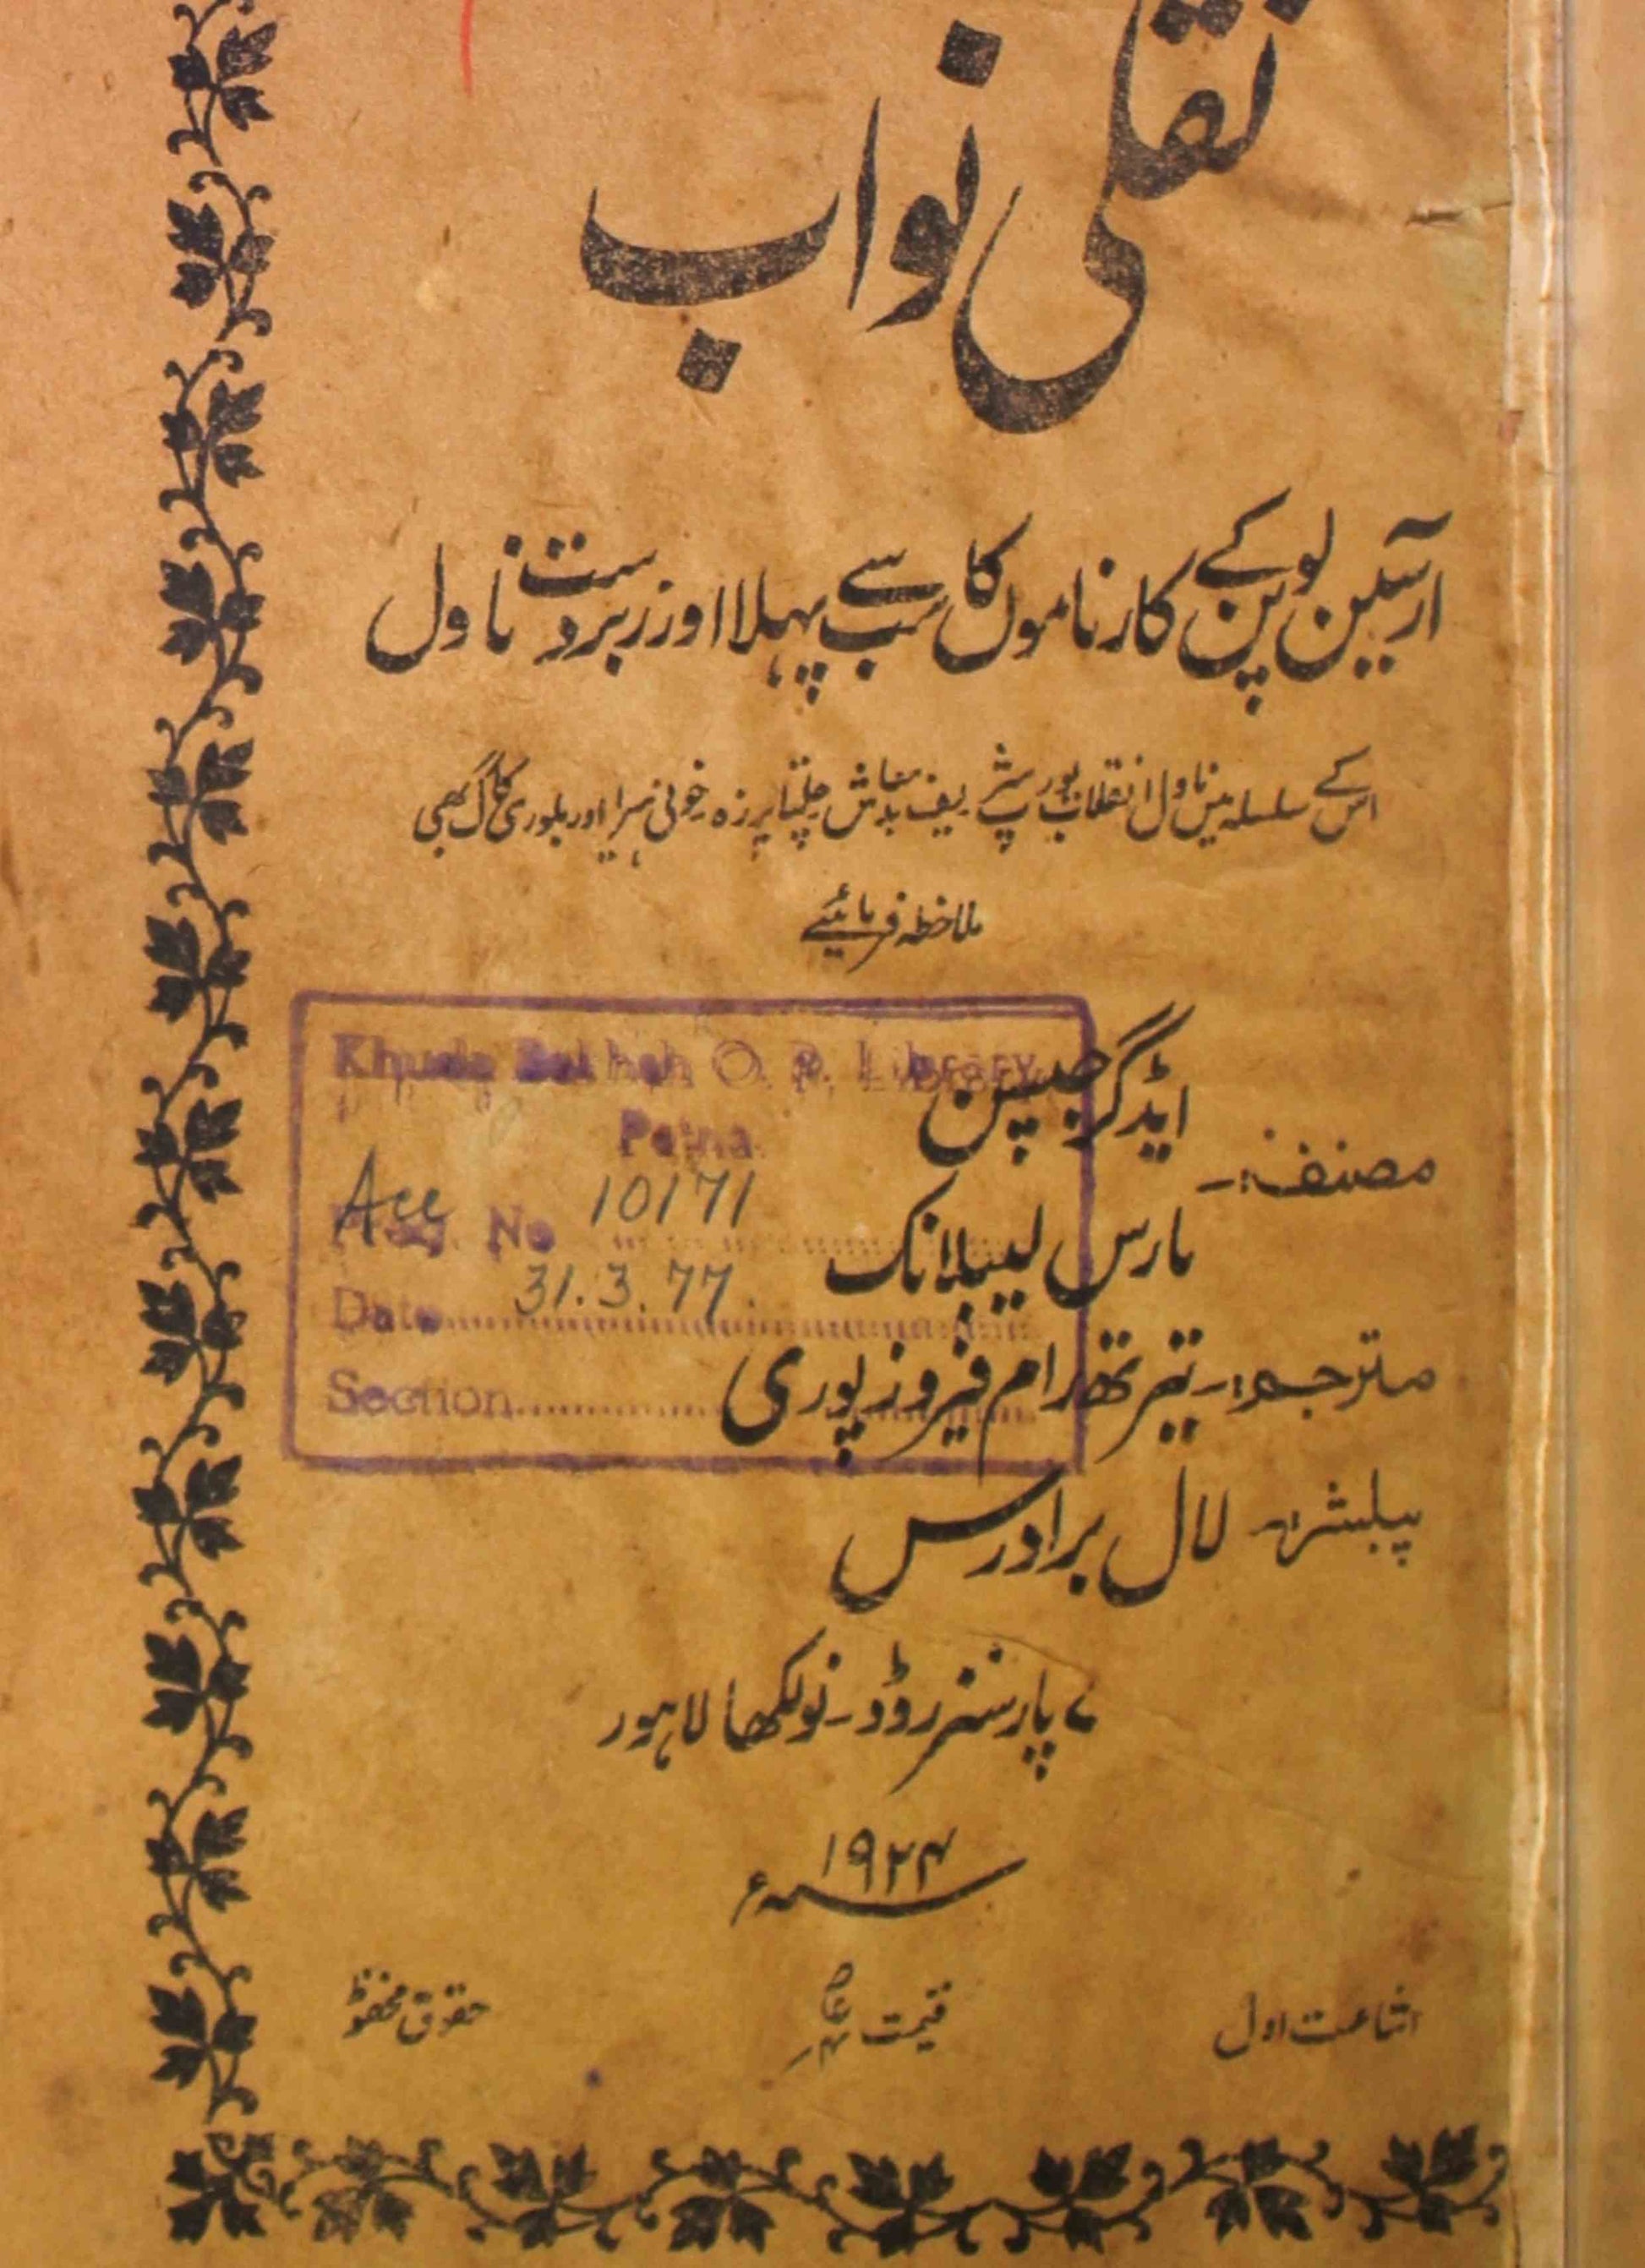 نقلی نواب
ارسین لوپن کے کارناموں کا سب سے پہلا اور زبردست ناول
اس کے سلسلہ میں ناول انقلاب یورپ شریف بدمعاش چلتا پرزہ خونی ہیرا اور بلوری کاگ بھی
ملاحظہ فرمائیے
مصنفہ:۔ ایڈگر جیپسن
مارس لیبلانک
مترجمہ:۔ تیرتھ رام فیروزپوری
پبلشر:۔ لال برادرس
۷ پارسنز روڈ۔ نولکھا لاہور
۱۹۲۴ء
اشاعت اول
قیمت
حقوق محفوظ
Khuda Bakhsh O. P. Library
Patna
Acc No 10171
Date 31.3.77.
Section